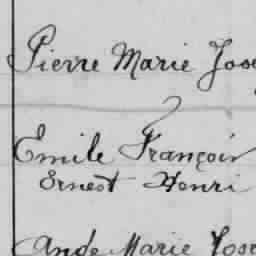 Pierre Marie Jose
Emile François
Ernest Henri
Ange Marie Jose